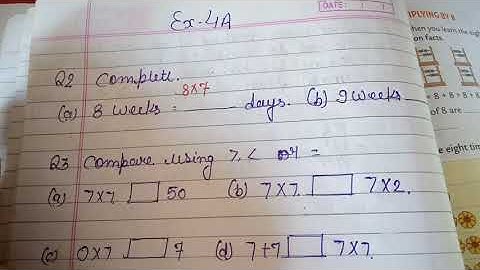 DATE:
Ex-4A
Q2 Complete.
8x7
(a) 8 weeks = ______ days. (b) 9 weeks
Q3 Compare using >, < or =
(a) 7x7 □ 50 (b) 7x7 □ 7x2.
(c) 0x7 □ 7 (d) 7+7 □ 7x7.
IPLYING BY 8
hen you learn the eigh
on facts.
+ 8 + 8 + 8 +
of 8 are
he eight time